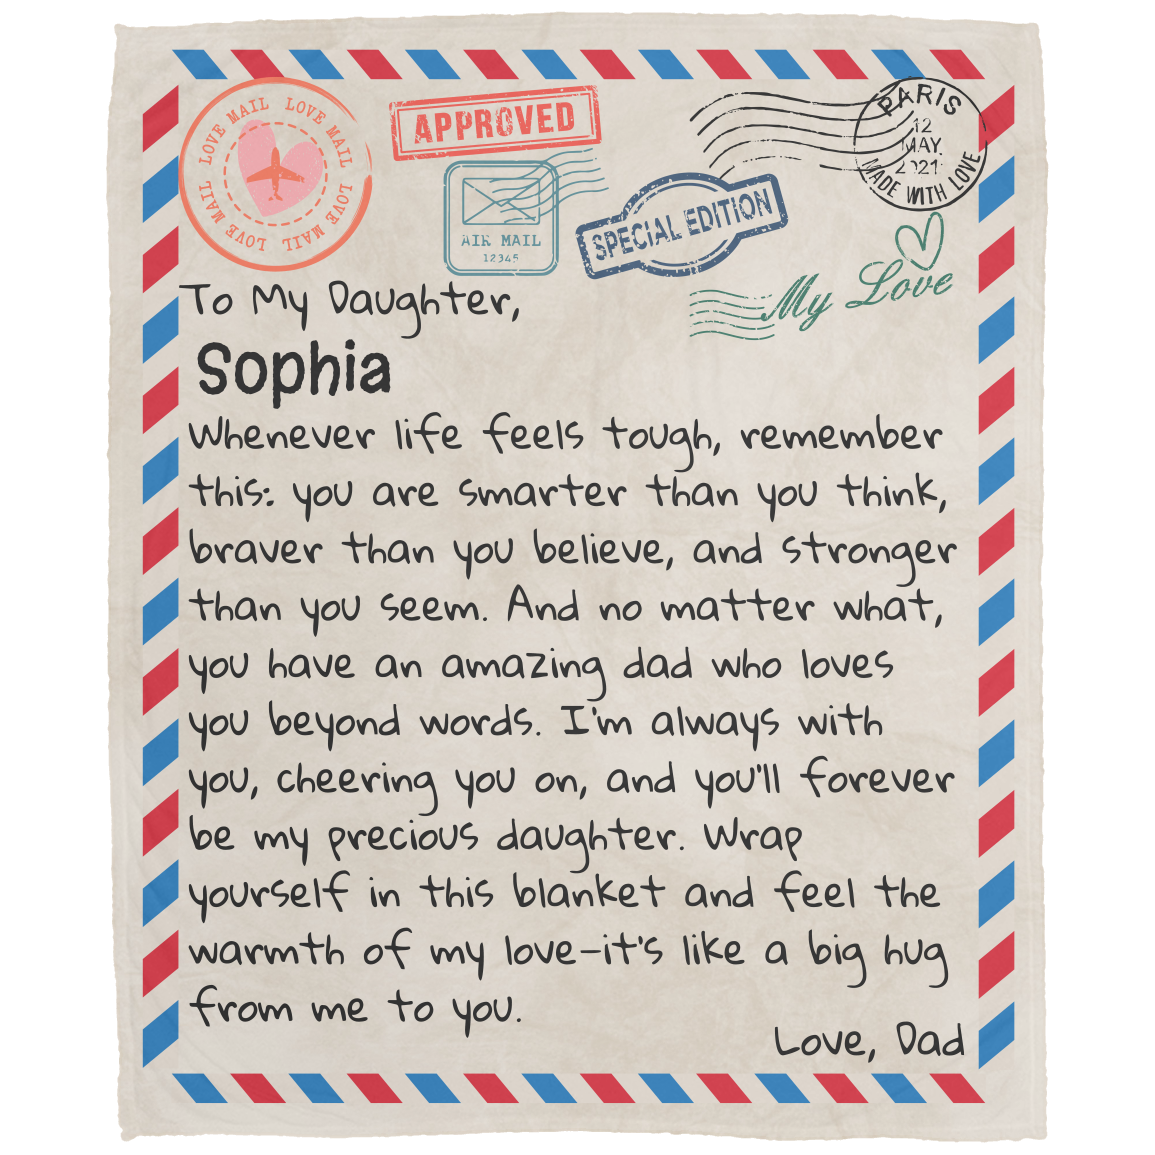 LOVE MAIL LOVE MAIL LOVE MAIL LOVE MAIL
APPROVED
PARIS
12
MAY
2021
MADE WITH LOVE
AIR MAIL
12345
SPECIAL EDITION
My Love
To My Daughter,
Sophia
Whenever life feels tough, remember
this: you are smarter than you think,
braver than you believe, and stronger
than you seem. And no matter what,
you have an amazing dad who loves
you beyond words. I'm always with
you, cheering you on, and you'll forever
be my precious daughter. Wrap
yourself in this blanket and feel the
warmth of my love-it's like a big hug
from me to you.
Love, Dad